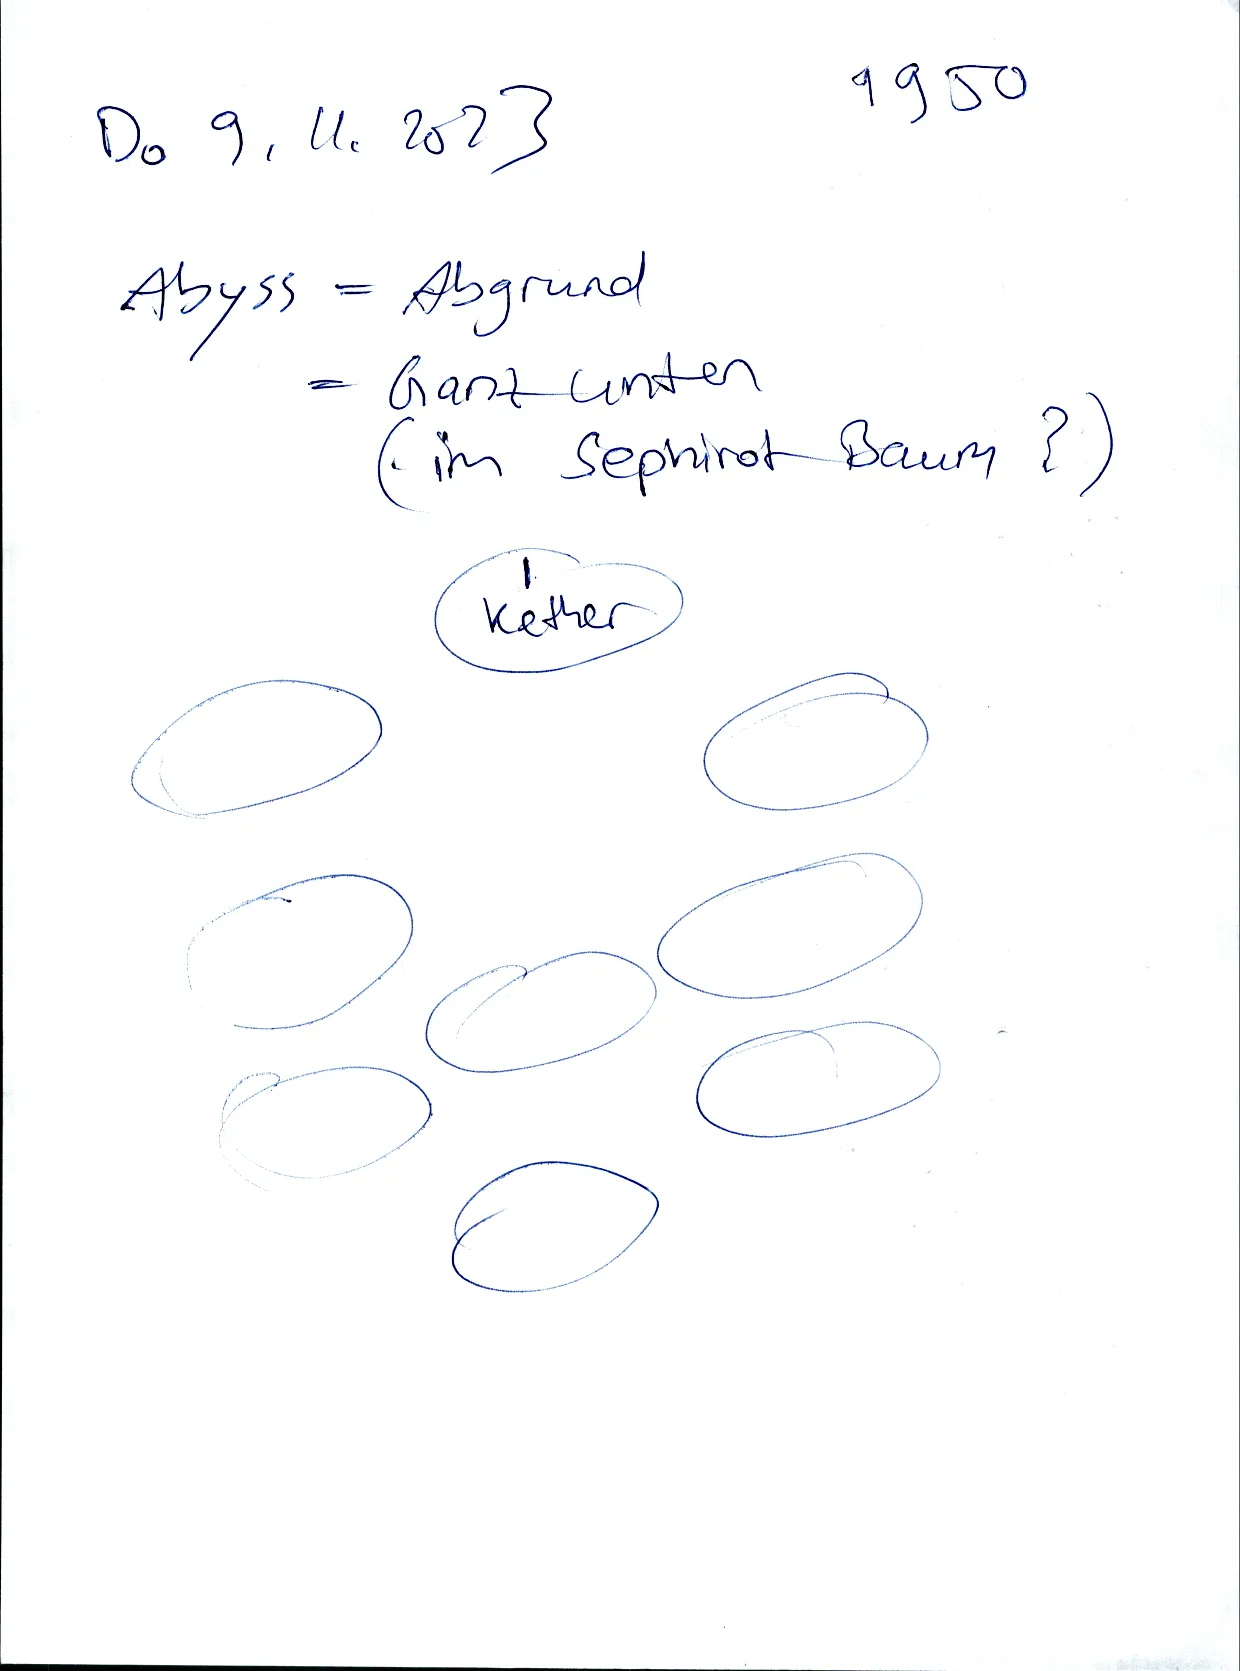 1950
Do 9. 11. 2023
Abyss = Abgrund
= Ganz unten
(im Sephirot Baum ?)
1
Kether